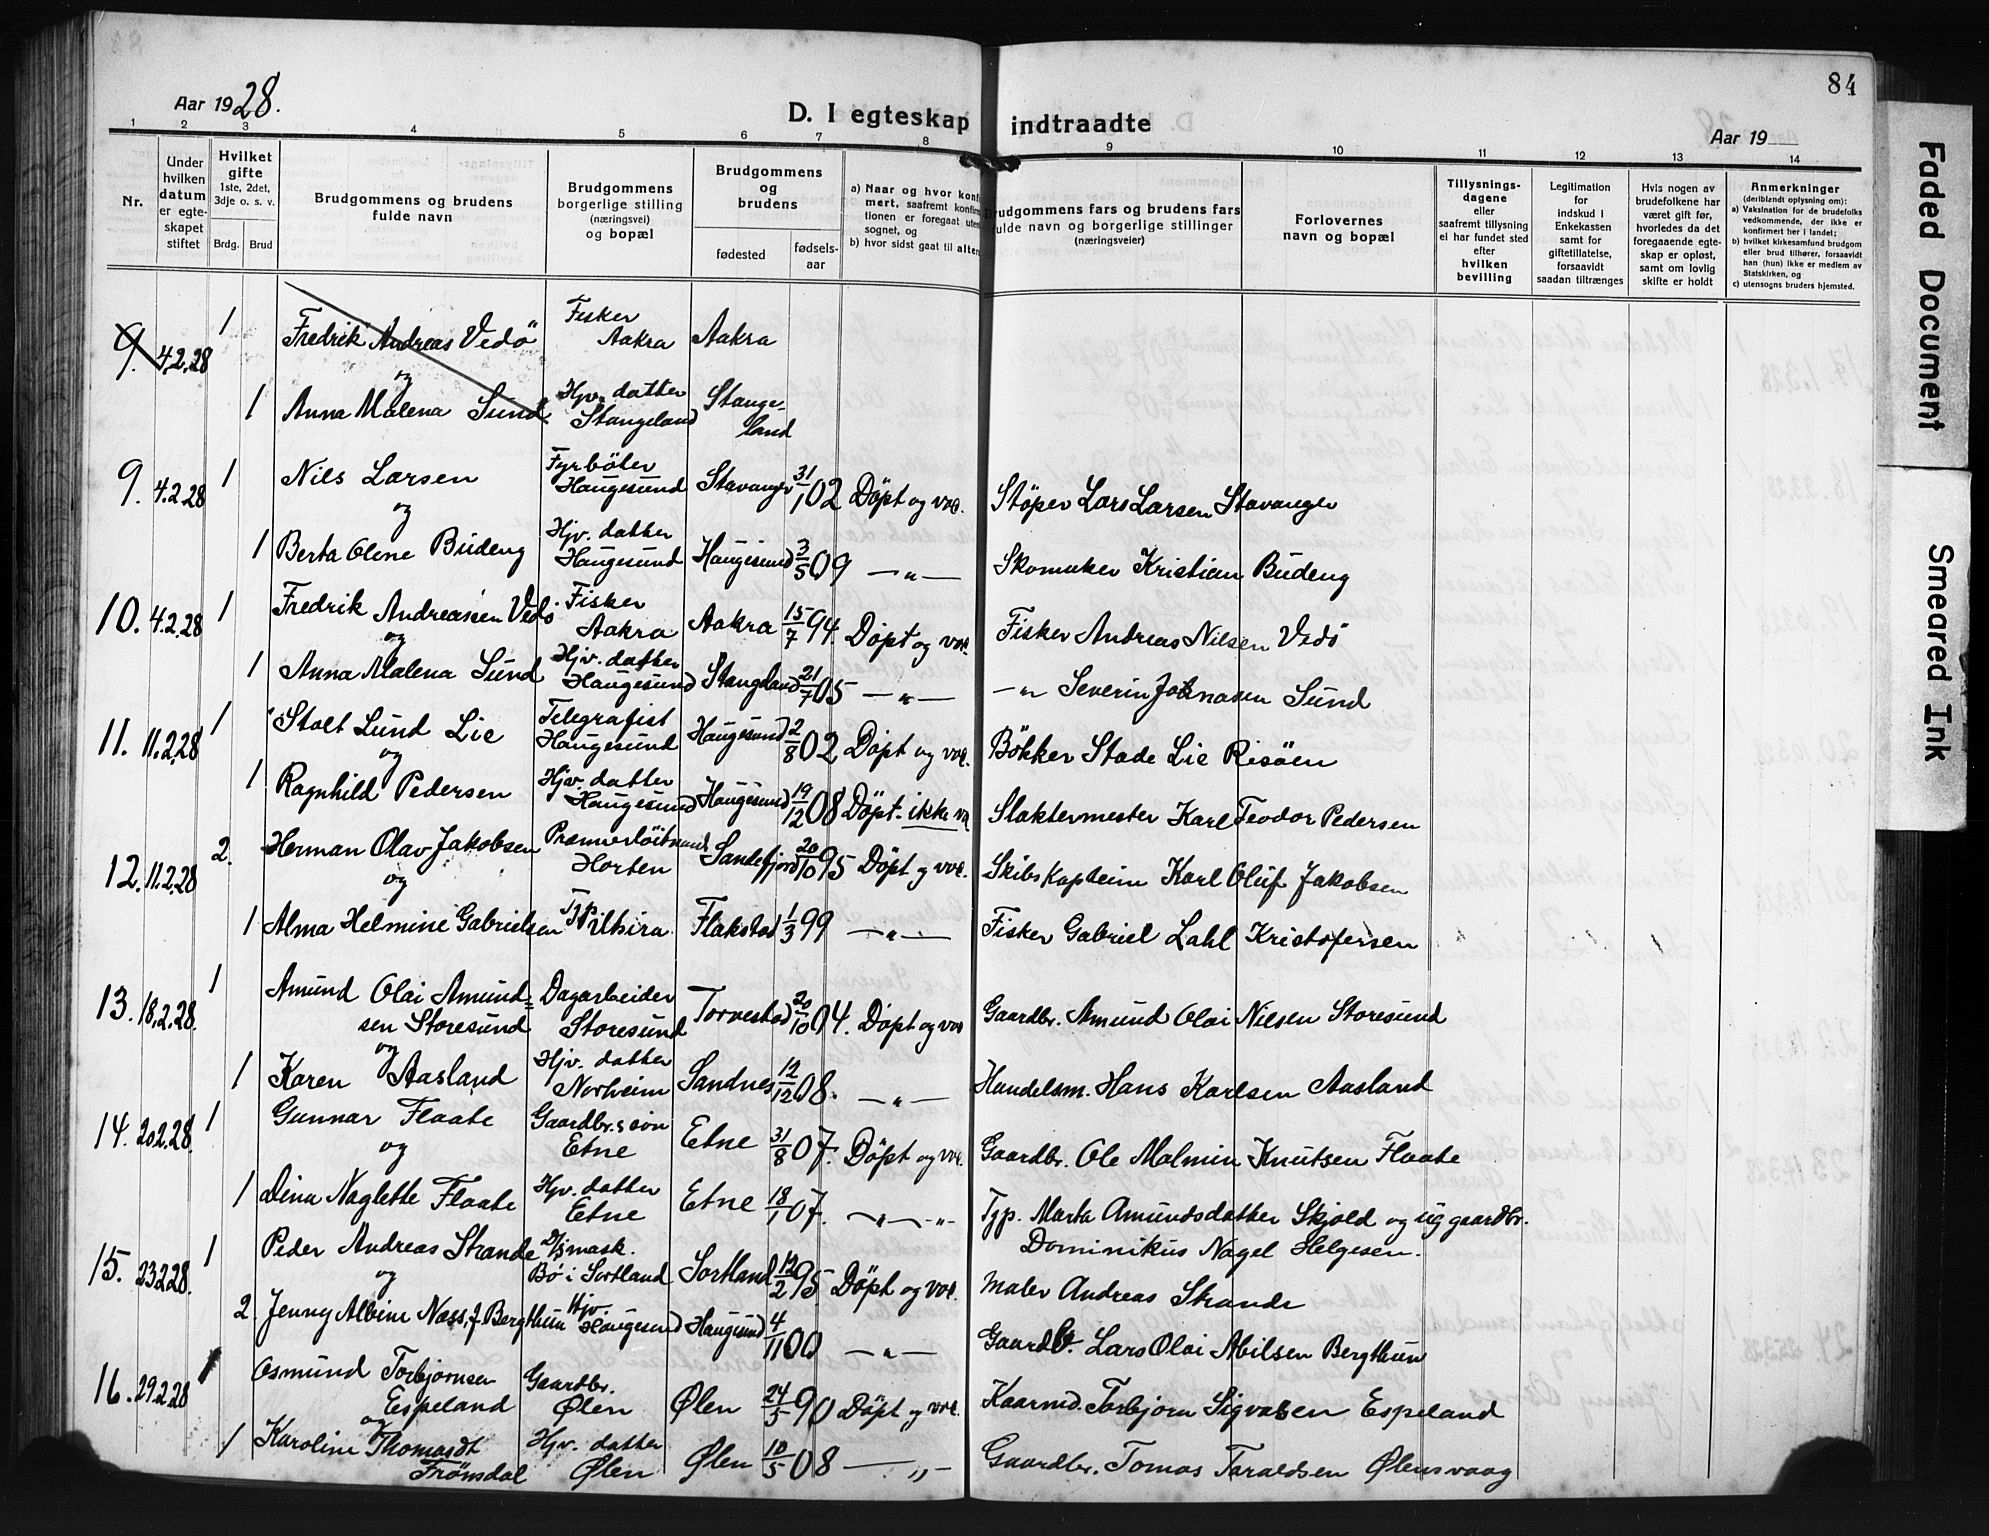 84
Aar 1928.
D. I egteskap indtraadte
Aar 19
1 2 3 4 5 6 7 8 9 10 11 12 13 14
Nr.
Under hvilken datum er egteskapet stiftet
Hvilket gifte
1ste, 2det, 3dje o. s. v.
Brdg. Brud
Brudgommens og brudens fulde navn
Brudgommens borgerlige stilling (næringsvei) og bopæl
Brudgommens og brudens
fødested
fødselsaar
a) Naar og hvor konfimert, saafremt konfirmtionen er foregaat uten sognet, og
b) hvor sidst gaat til alter
Brudgommens fars og brudens fars fulde navn og borgerlige stillinger (næringsveier)
Forlovernes navn og bopæl
Tillysningsdagene eller saafremt tillysning ei har fundet sted efter hvilken bevilling
Legitimation for indskud i Enkekassen samt for giftetillatelse, forsaavidt saadan tiltrænges
Hvis nogen av brudefolkene har været gift før, hvorledes da det foregaaende egteskap er opløst, samt om lovlig skifte er holdt
Anmerkninger (deriblandt oplysning om):
a) Vaksination for de brudefolks vedkommende, der ikke er konfirmert her i landet;
b) hvilket kirkesamfund brudgom eller brud tilhører, forsaavidt han (hun) ikke er medlem av Statskirken, og
c) utensogns bruders hjemsted.
9. 4.2.28 1 Fredrik Andreas Vedö Fisker Aakra Aakra
og
1 Anna Malena Sund Hjv. datter Stangeland Stangeland
9. 4.2.28 1 Nils Larsen Fyrböter Haugesund Stavanger 31/1 02 Döpt og vac. Støper Lars Larsen Stavanger
og
1 Berta Oline Budeng Hjv. datter Haugesund Haugesund 3/5 09 —"— Skomaker Kristian Budeng
10. 4.2.28 1 Fredrik Andreassen Vedö Fisker Aakra Aakra 15/7 94. Döpt og vac. Fisker Andreas Nilsen Vedö
og
1 Anna Malena Sund Hjv. datter Haugesund Stangeland 21/7 05 —"— —"— Severin Johnasen Sund
11. 11.2.28 1 Stolt Lund Lie Telegrafist Haugesund Haugesund 2/8 02 Döpt og vac. Bökker Stade Lie Risöen
og
1 Ragnhild Pedersen Hjv. datter Haugesund Haugesund 19/12 08 Döpt. ikke va Slaktermester Karl Teodor Pedersen
12. 11.2.28 2. Herman Olav Jakobsen Premierlöitnant Horten Sandefjord 20/10 95 Döpt og vac. Skibskaptein Karl Oluf Jakobsen
og
1 Alma Helmine Gabrielsen Tjp. Utsira Flakstad 1/3 99 —"— Fisker Gabriel Lahl Kristofersen
13. 18.2.28. 1 Amund Olai Amundsen Storesund Dagarbeider Storesund Torvestad 20/10 04. Döpt og vac Gaardbr. Amund Olai Nilsen Storesund
og
1 Karen Aasland Hjv. datter Norheim Sandnes 12/12 08. —"— Handelsm. Hans Karlsen Aasland
14. 20.2.28. 1 Gunnar Flaate Gaardbr.s sön Etne Etne 31/8 07. Döpt og vac. Gaardbr. Ole Malmin Knutsen Flaate
og
1 Dina Naglette Flaate Hjv. datter Etne Etne 18/1 07. —"— —"— Tjp. Marta Amundsdatter Skjold og ug gaardbr. Dominikus Nagel Helgesen.
15. 23.2.28. 1 Peder Andreas Strande mask. Bö i Sortland Sortland 12/2 95 Döpt og vac. Maler Andreas Strande
og
2. Jenny Albine Næss, f. Bergthun Hjv. Haugesund Haugesund 4/11 00 —"— Gaardbr. Lars Olai Abilsen Bergthun
16. 29.2.28 1 Osmund Torbjornsen Espeland Gaardbr. Ølen Ølen 24/5 90 Döpt og vac. Torbjorn Sigvalsen Espeland
og
1 Karoline Thomasdt Frönsdal Hjv. datter Ølen Ølen 10/5 08 —"— Gaardbr. Tomas Taraldsen Ølensvaag
Faded Document
Smeared Ink